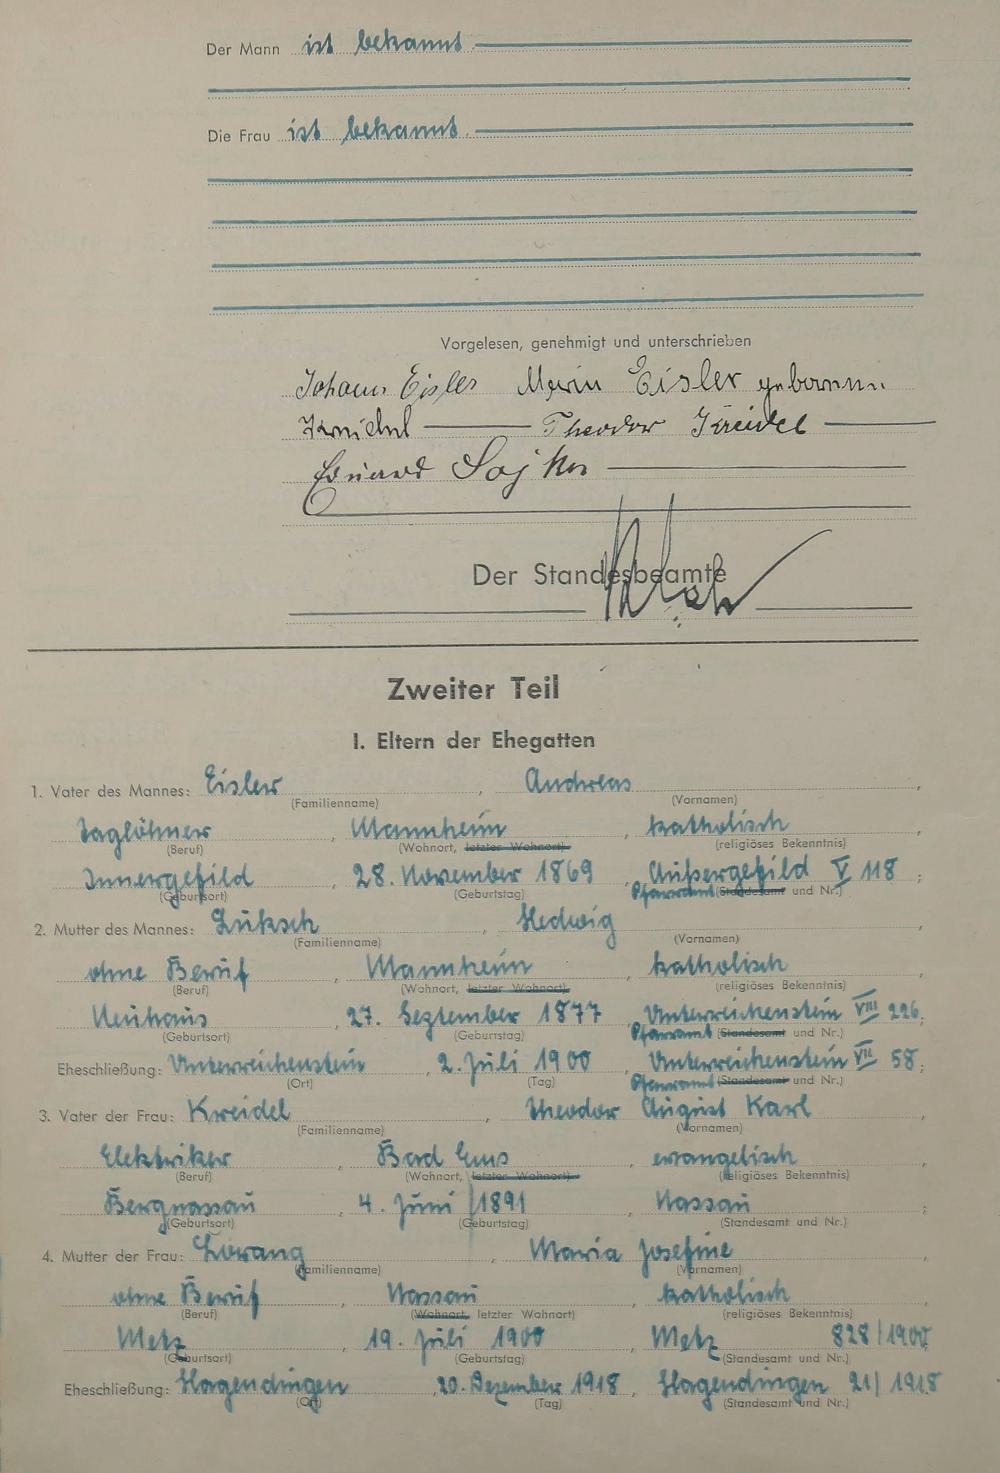 Der Mann ist bekannt
Die Frau ist bekannt
Vorgelesen, genehmigt und unterschrieben
Johann Eisler Maria Eisler geborene
Kreidel Theodor Kreidel
Eduard Sojka
Der Standesbeamte
Zweiter Teil
I. Eltern der Ehegatten
1. Vater des Mannes: Eisler, Andreas,
(Familienname) (Vornamen)
Taglöhner, Mannheim, katholisch
(Beruf) (Wohnort, letzter Wohnort) (religiöses Bekenntnis)
Innergefild, 28. November 1869, Außergefild V 118;
(Geburtsort) (Geburtstag) Pfarramt (Standesamt und Nr.)
2. Mutter des Mannes: Luksch, Hedwig,
(Familienname) (Vornamen)
ohne Beruf, Mannheim, katholisch
(Beruf) (Wohnort, letzter Wohnort) (religiöses Bekenntnis)
Neuhaus, 27. September 1877, Unterreichenstein VIII 226;
(Geburtsort) (Geburtstag) Pfarramt (Standesamt und Nr.)
Eheschließung: Unterreichenstein, 2. Juli 1900, Unterreichenstein VII 58;
(Ort) (Tag) Pfarramt (Standesamt und Nr.)
3. Vater der Frau: Kreidel, Theodor August Karl,
(Familienname) (Vornamen)
Elektriker, Bad Ems, evangelisch
(Beruf) (Wohnort, letzter Wohnort) (religiöses Bekenntnis)
Bergnassau, 4. Juni 1891, Nassau;
(Geburtsort) (Geburtstag) (Standesamt und Nr.)
4. Mutter der Frau: Lorang, Maria Josefine,
(Familienname) (Vornamen)
ohne Beruf, Nassau, katholisch
(Beruf) (Wohnort, letzter Wohnort) (religiöses Bekenntnis)
Metz, 19. Juli 1900, Metz 828/1900;
(Geburtsort) (Geburtstag) (Standesamt und Nr.)
Eheschließung: Hagendingen, 20. Dezember 1918, Hagendingen 21/1918
(Ort) (Tag) (Standesamt und Nr.)